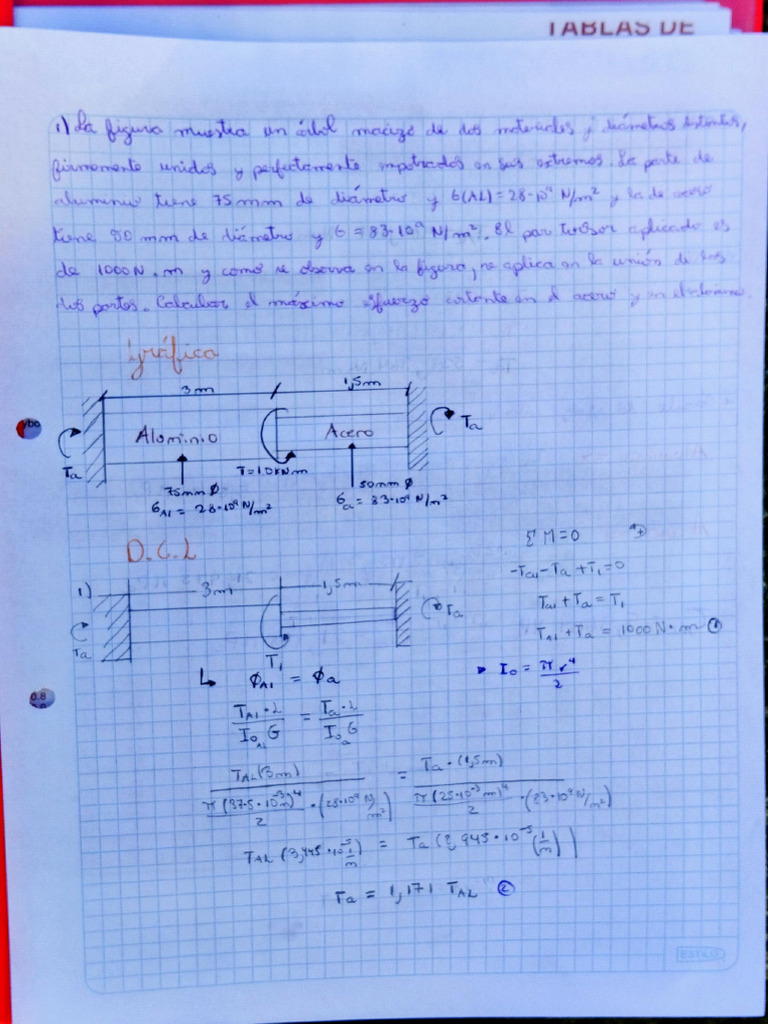 TABLAS DE
1) La figura muestra un árbol macizo de dos materiales y diámetros distintos,
firmemente unidos y perfectamente empotrados en sus extremos. La parte de
aluminio tiene 75 mm de diámetro y G(AL) = 28·10⁹ N/m² y la de acero
tiene 50 mm de diámetro y G = 83·10⁹ N/m². El par torsor aplicado es
de 1000 N·m y como se observa en la figura, se aplica en la unión de las
dos partes. Calcular el máximo esfuerzo cortante en el acero y en el aluminio.
gráfica
3m 1,5m
Aluminio Acero Ta
Ta T=1.0kNm
75mm Ø 50mm Ø
G_Al = 28·10⁹ N/m² G_a = 83·10⁹ N/m²
D.C.L
ΣM=0 +
-Tal-Ta+T₁=0
1) 3m 1,5m
Tal+Ta=T₁
Ta Ta
TAl+Ta = 1000 N·m ①
T₁
↳ ØAl = Øa
▸ Io = πr⁴/2
TAl·L/Io_Al G = Ta·L/Io_a G
TAL(3m)/(π(37.5·10⁻³m)⁴/2 ·(28·10⁹ N/m²)) = Ta·(1,5m)/(π(25·10⁻³m)⁴/2 ·(83·10⁹ N/m²))
TAL (3,445·10⁻⁵ 1/m) = Ta (2,945·10⁻⁵ (1/m))
Ta = 1,171 TAL ②
ESTILO
0.8